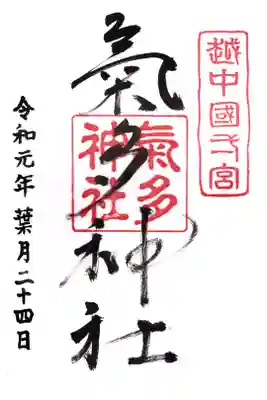 越中國一宮
氣多神社
氣多
神社
令和元年 葉月二十四日